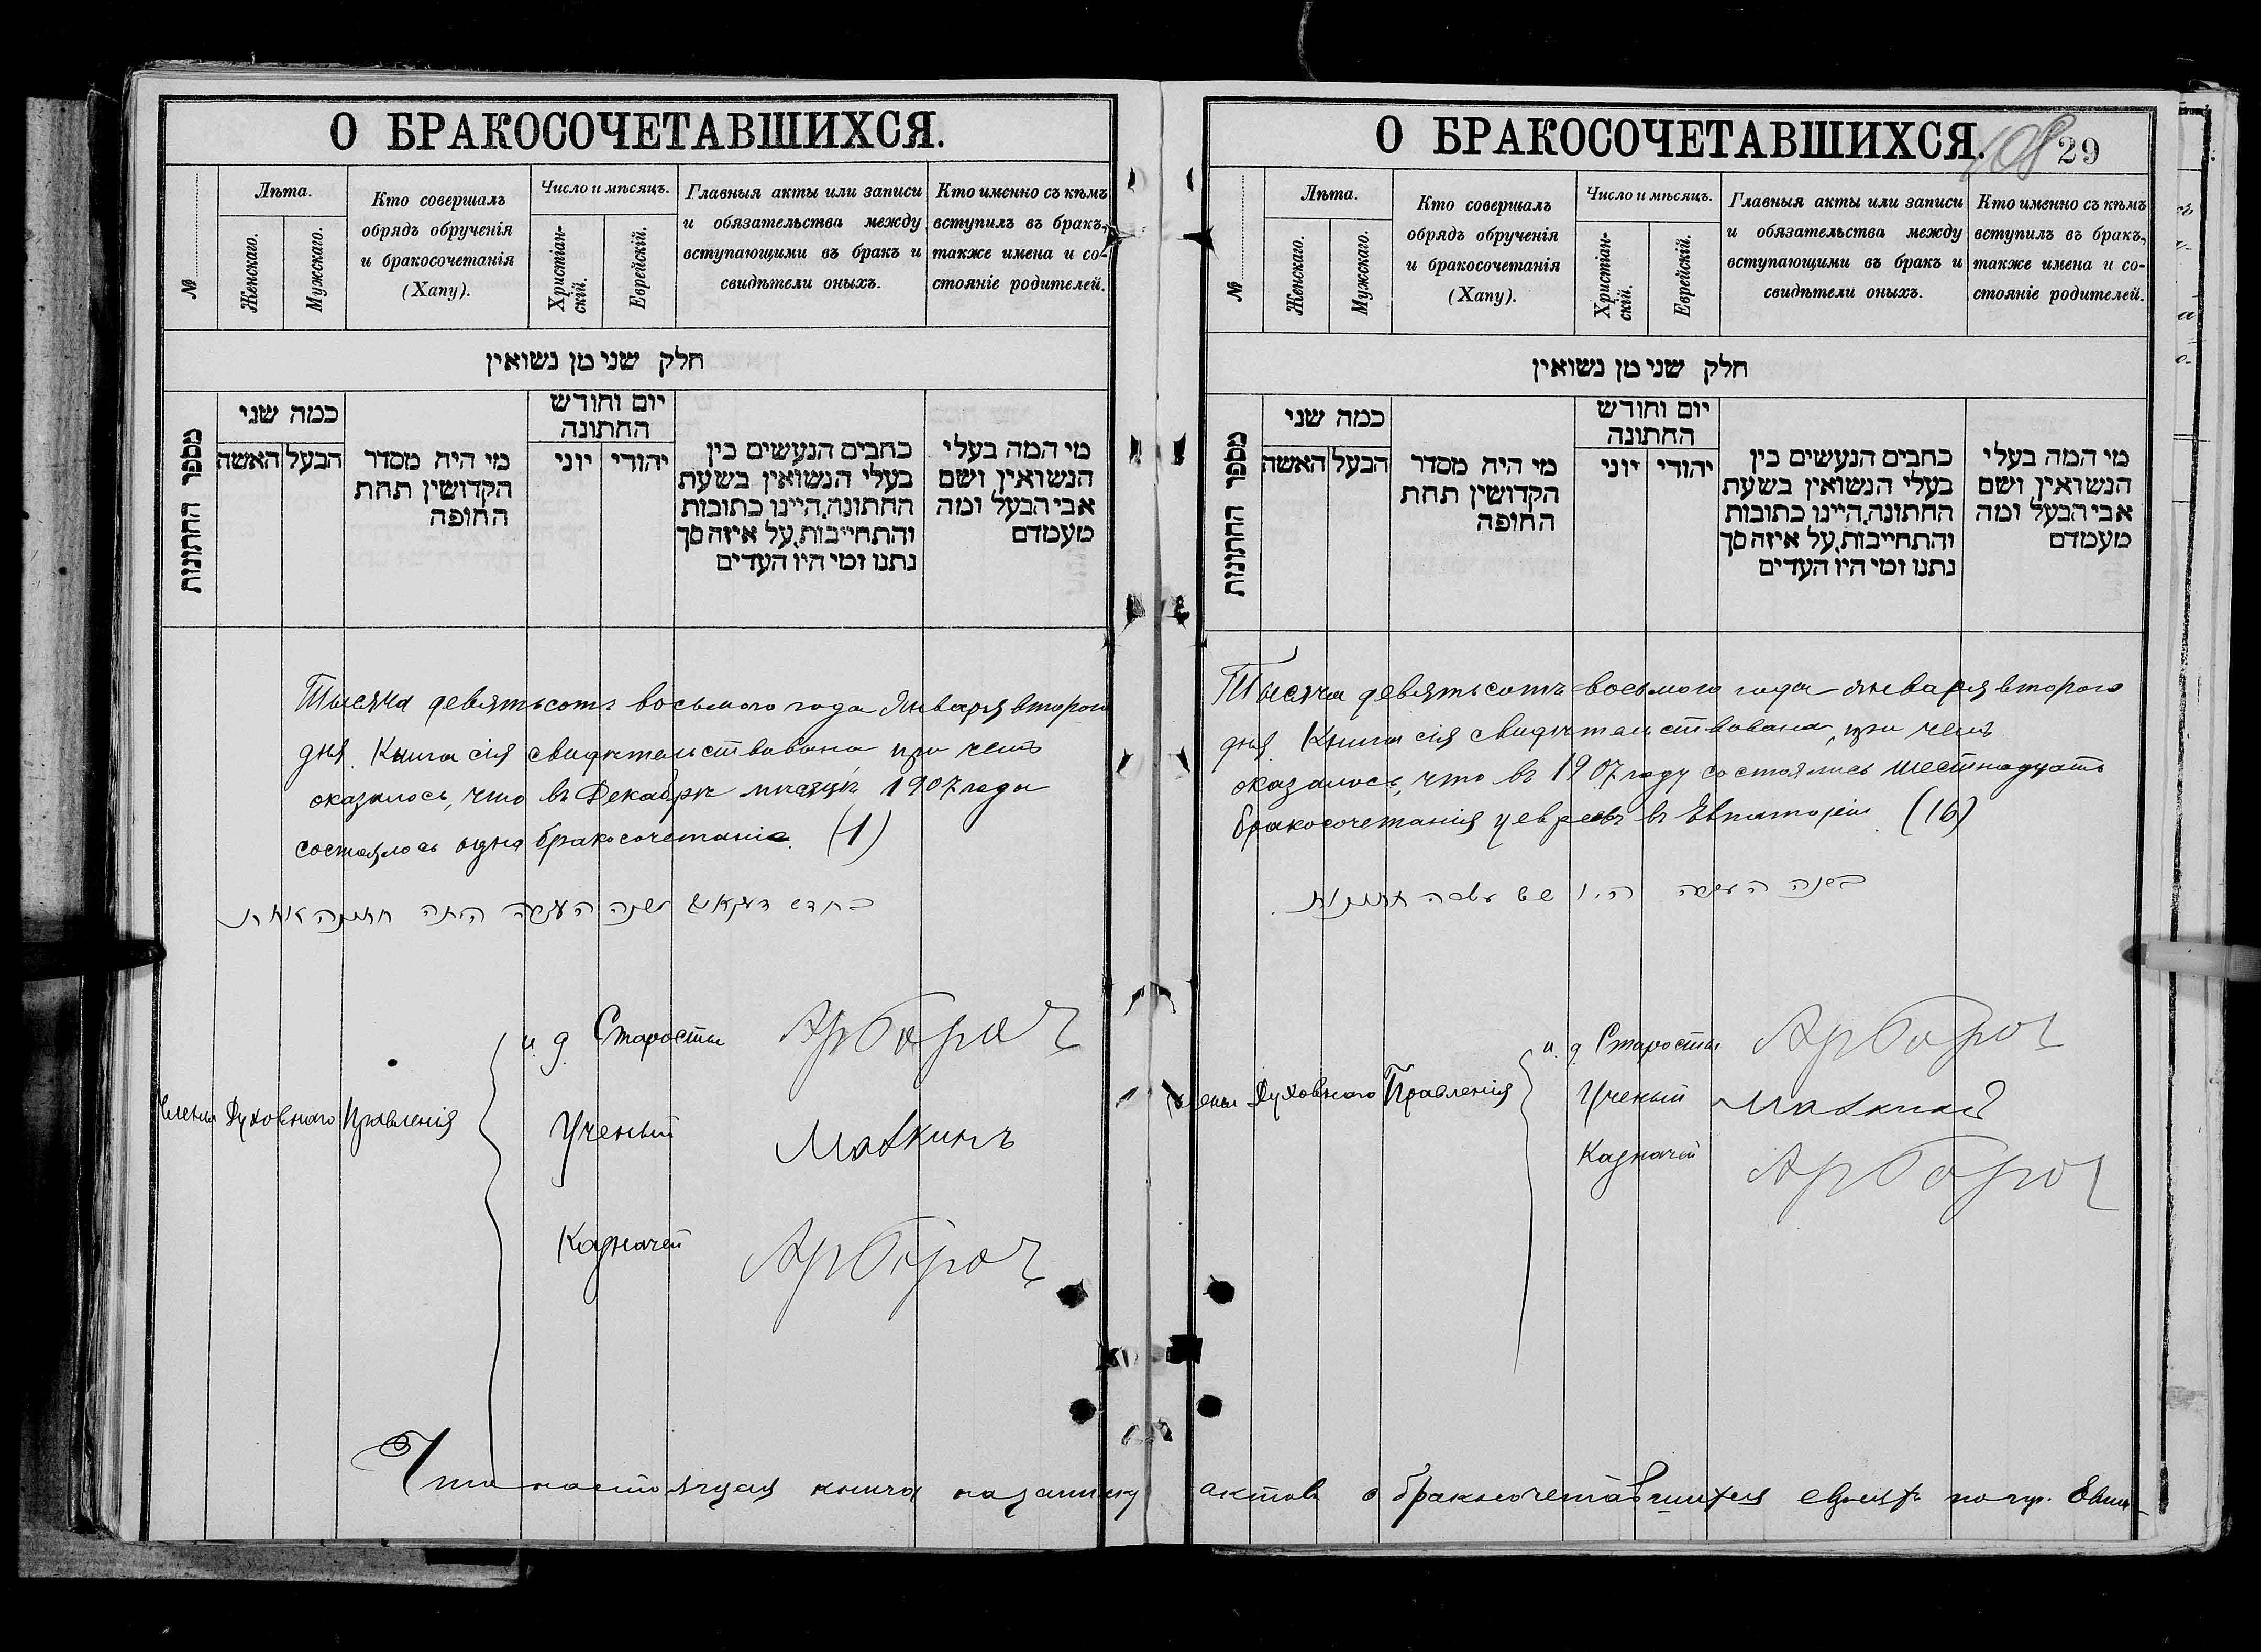 О БРАКОСОЧЕТАВШИХСЯ.
№
Лѣта.
Женскаго.
Мужскаго.
Кто совершалъ
обрядъ обрученія
и бракосочетанія
(Хапу).
Число и мѣсяцъ.
Христіан-
скій.
Еврейскій.
Главныя акты или записи
и обязательства между
вступающими въ бракъ и
свидѣтели оныхъ.
Кто именно съ кѣмъ
вступилъ въ бракъ,
также имена и со-
стояніе родителей.
חלק שני מן נשואין
מספר החתונות
כמה שני
הבעל האשה
מי היה מסדר
הקדושין תחת
החופה
יום וחודש
החתונה
יהודי יוני
כתבים הנעשים בין
בעלי הנשואין בשעת
החתונה, היינו כתובות
והתחייבות, על איזה סך
נתנו ומי היו העדים
מי המה בעלי
הנשואין ושם
אבי הבעל ומה
מעמדם
Тысяча девятьсотъ восьмого года Января второго
дня. Книга сія свидѣтельствована при чемъ
оказалось, что въ Декабрѣ мѣсяцѣ 1907 года
состоялось одно бракосочетаніе. (1)
היתה חתונה אחת
Члены Духовнаго Правленія
и. д. Старосты
Ученый Маткинъ
Казначей
Что настоящая книга на записку
О БРАКОСОЧЕТАВШИХСЯ.
108 29
№
Лѣта.
Женскаго.
Мужскаго.
Кто совершалъ
обрядъ обрученія
и бракосочетанія
(Хапу).
Число и мѣсяцъ.
Христіан-
скій.
Еврейскій.
Главныя акты или записи
и обязательства между
вступающими въ бракъ и
свидѣтели оныхъ.
Кто именно съ кѣмъ
вступилъ въ бракъ,
также имена и со-
стояніе родителей.
חלק שני מן נשואין
מספר החתונות
כמה שני
הבעל האשה
מי היה מסדר
הקדושין תחת
החופה
יום וחודש
החתונה
יהודי יוני
כתבים הנעשים בין
בעלי הנשואין בשעת
החתונה, היינו כתובות
והתחייבות, על איזה סך
נתנו ומי היו העדים
מי המה בעלי
הנשואין ושם
אבי הבעל ומה
מעמדם
Тысяча девятьсотъ восьмого года января второго
дня Книга сія свидѣтельствована, при чемъ
оказалось, что въ 1907 году состоялись шестнадцать
бракосочетанія у евреевъ въ Евпаторіи. (16)
היו שש עשרה חתונות
Члены Духовнаго Правленія
и. д. Старосты
Ученый
Казначей
актовъ о бракосочетавшихся евреяхъ по гор. Евпа-